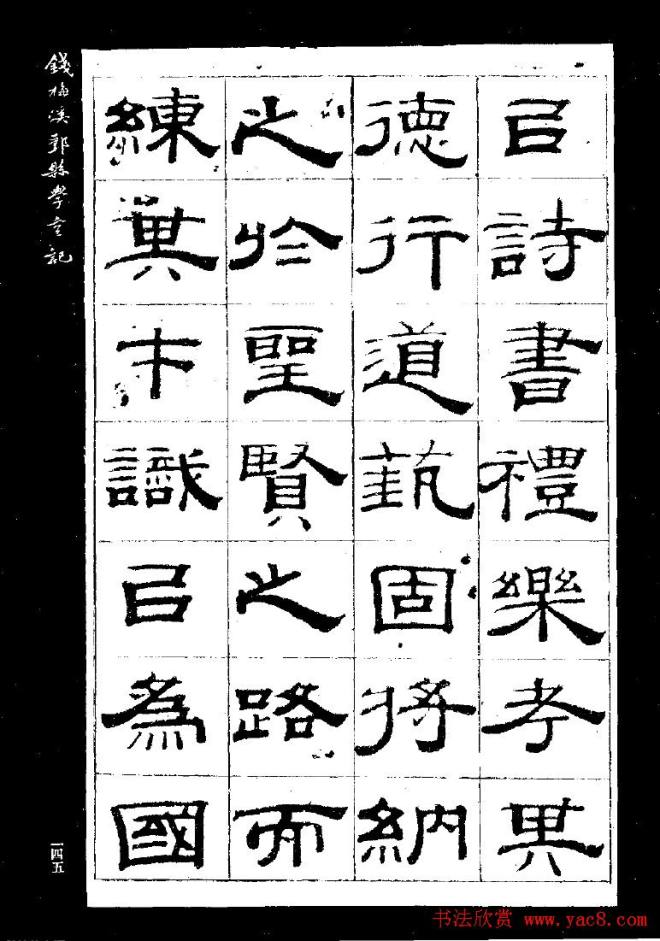 㠯詩書禮樂考其
德行道蓺固將納
之於聖賢之路而
練其才識㠯為國
錢梅溪縣學宮記
一四五
书法欣赏 www.yac8.com